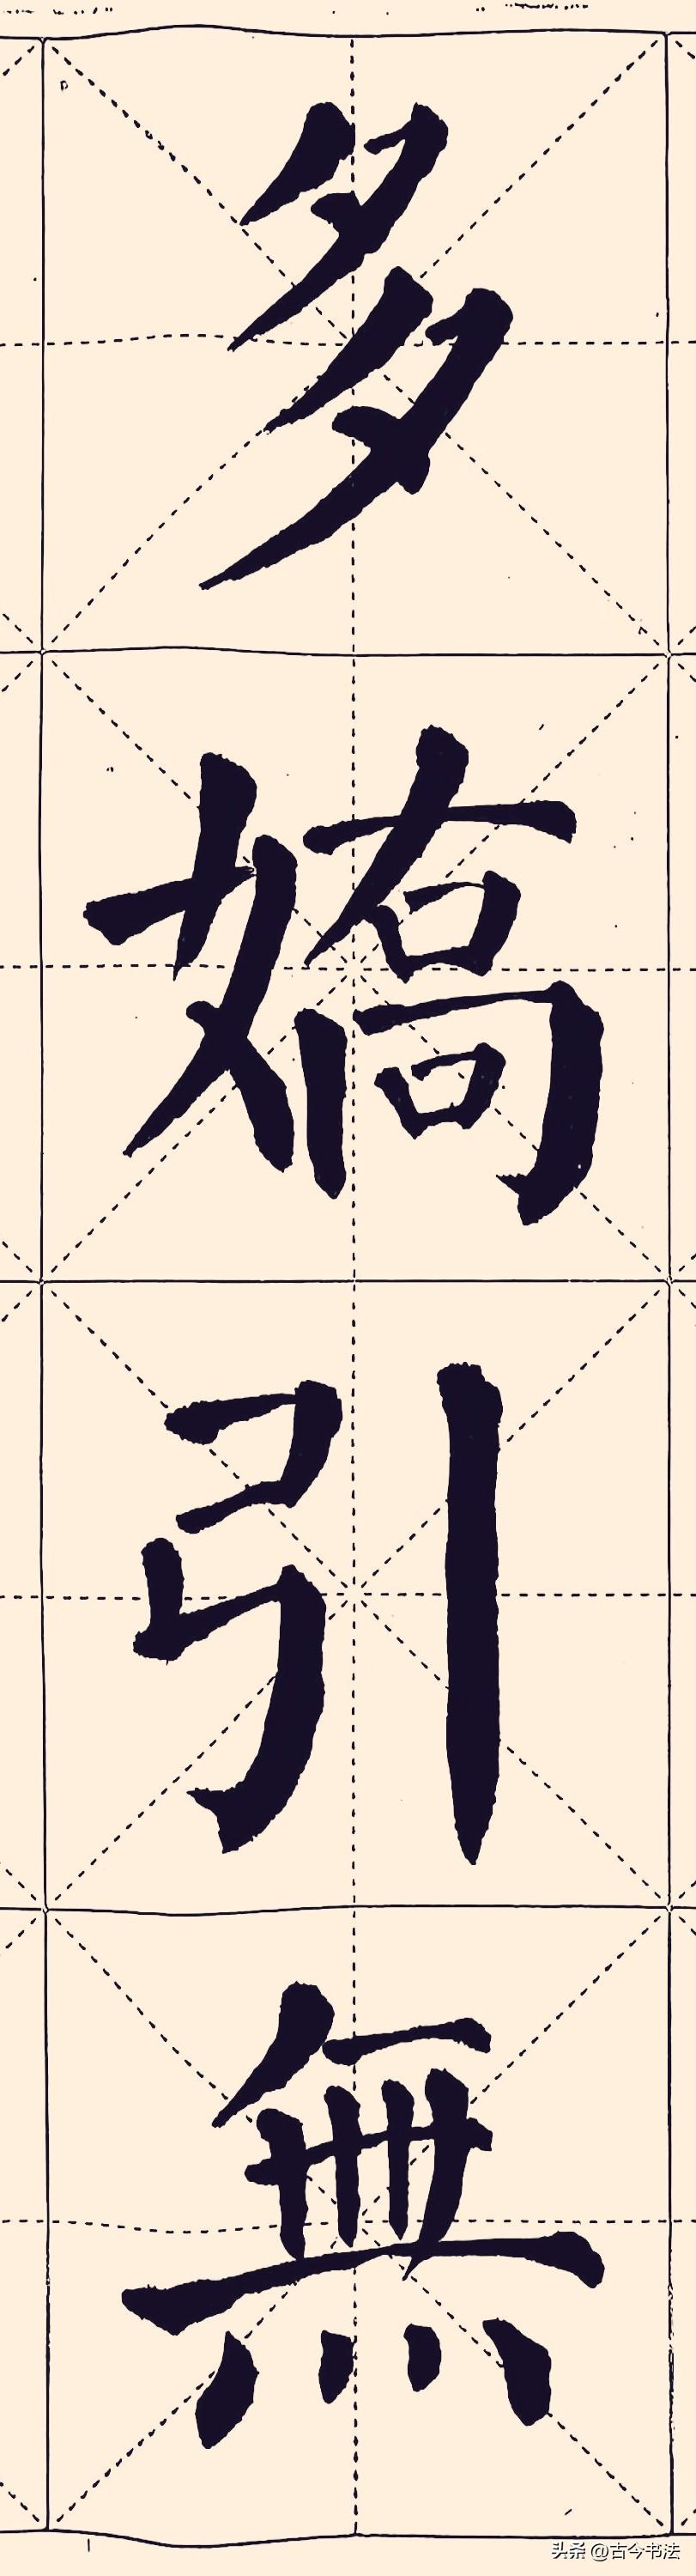 多
嬌
引
無
头条 @古今书法